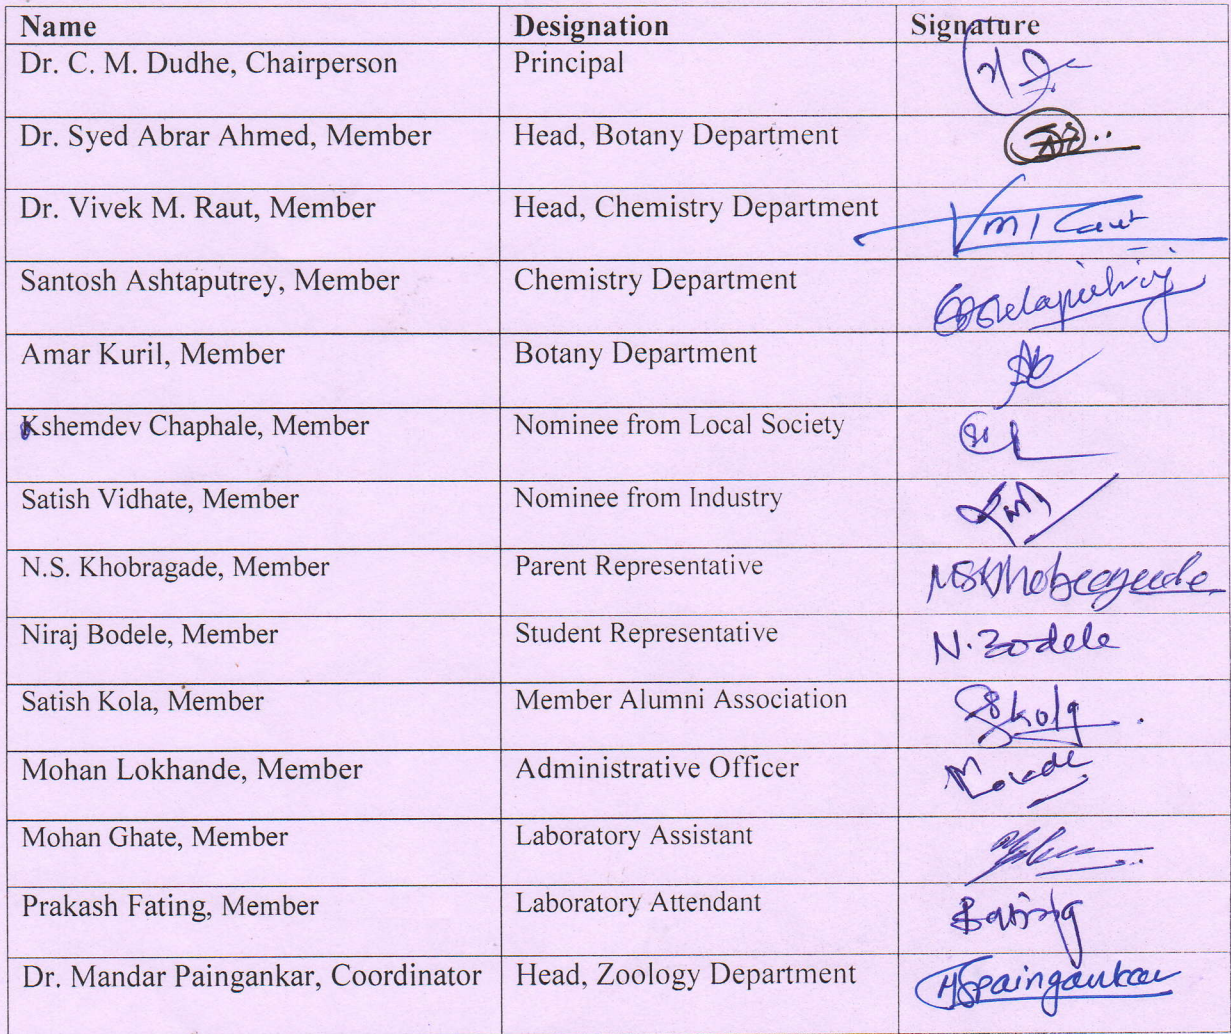 Name Designation Signature
Dr. C. M. Dudhe, Chairperson Principal
Dr. Syed Abrar Ahmed, Member Head, Botany Department
Dr. Vivek M. Raut, Member Head, Chemistry Department
Santosh Ashtaputrey, Member Chemistry Department
Amar Kuril, Member Botany Department
Kshemdev Chaphale, Member Nominee from Local Society
Satish Vidhate, Member Nominee from Industry
N.S. Khobragade, Member Parent Representative NSKhobragade
Niraj Bodele, Member Student Representative N. Bodele
Satish Kola, Member Member Alumni Association Skola
Mohan Lokhande, Member Administrative Officer
Mohan Ghate, Member Laboratory Assistant
Prakash Fating, Member Laboratory Attendant
Dr. Mandar Paingankar, Coordinator Head, Zoology Department MSpaingankar